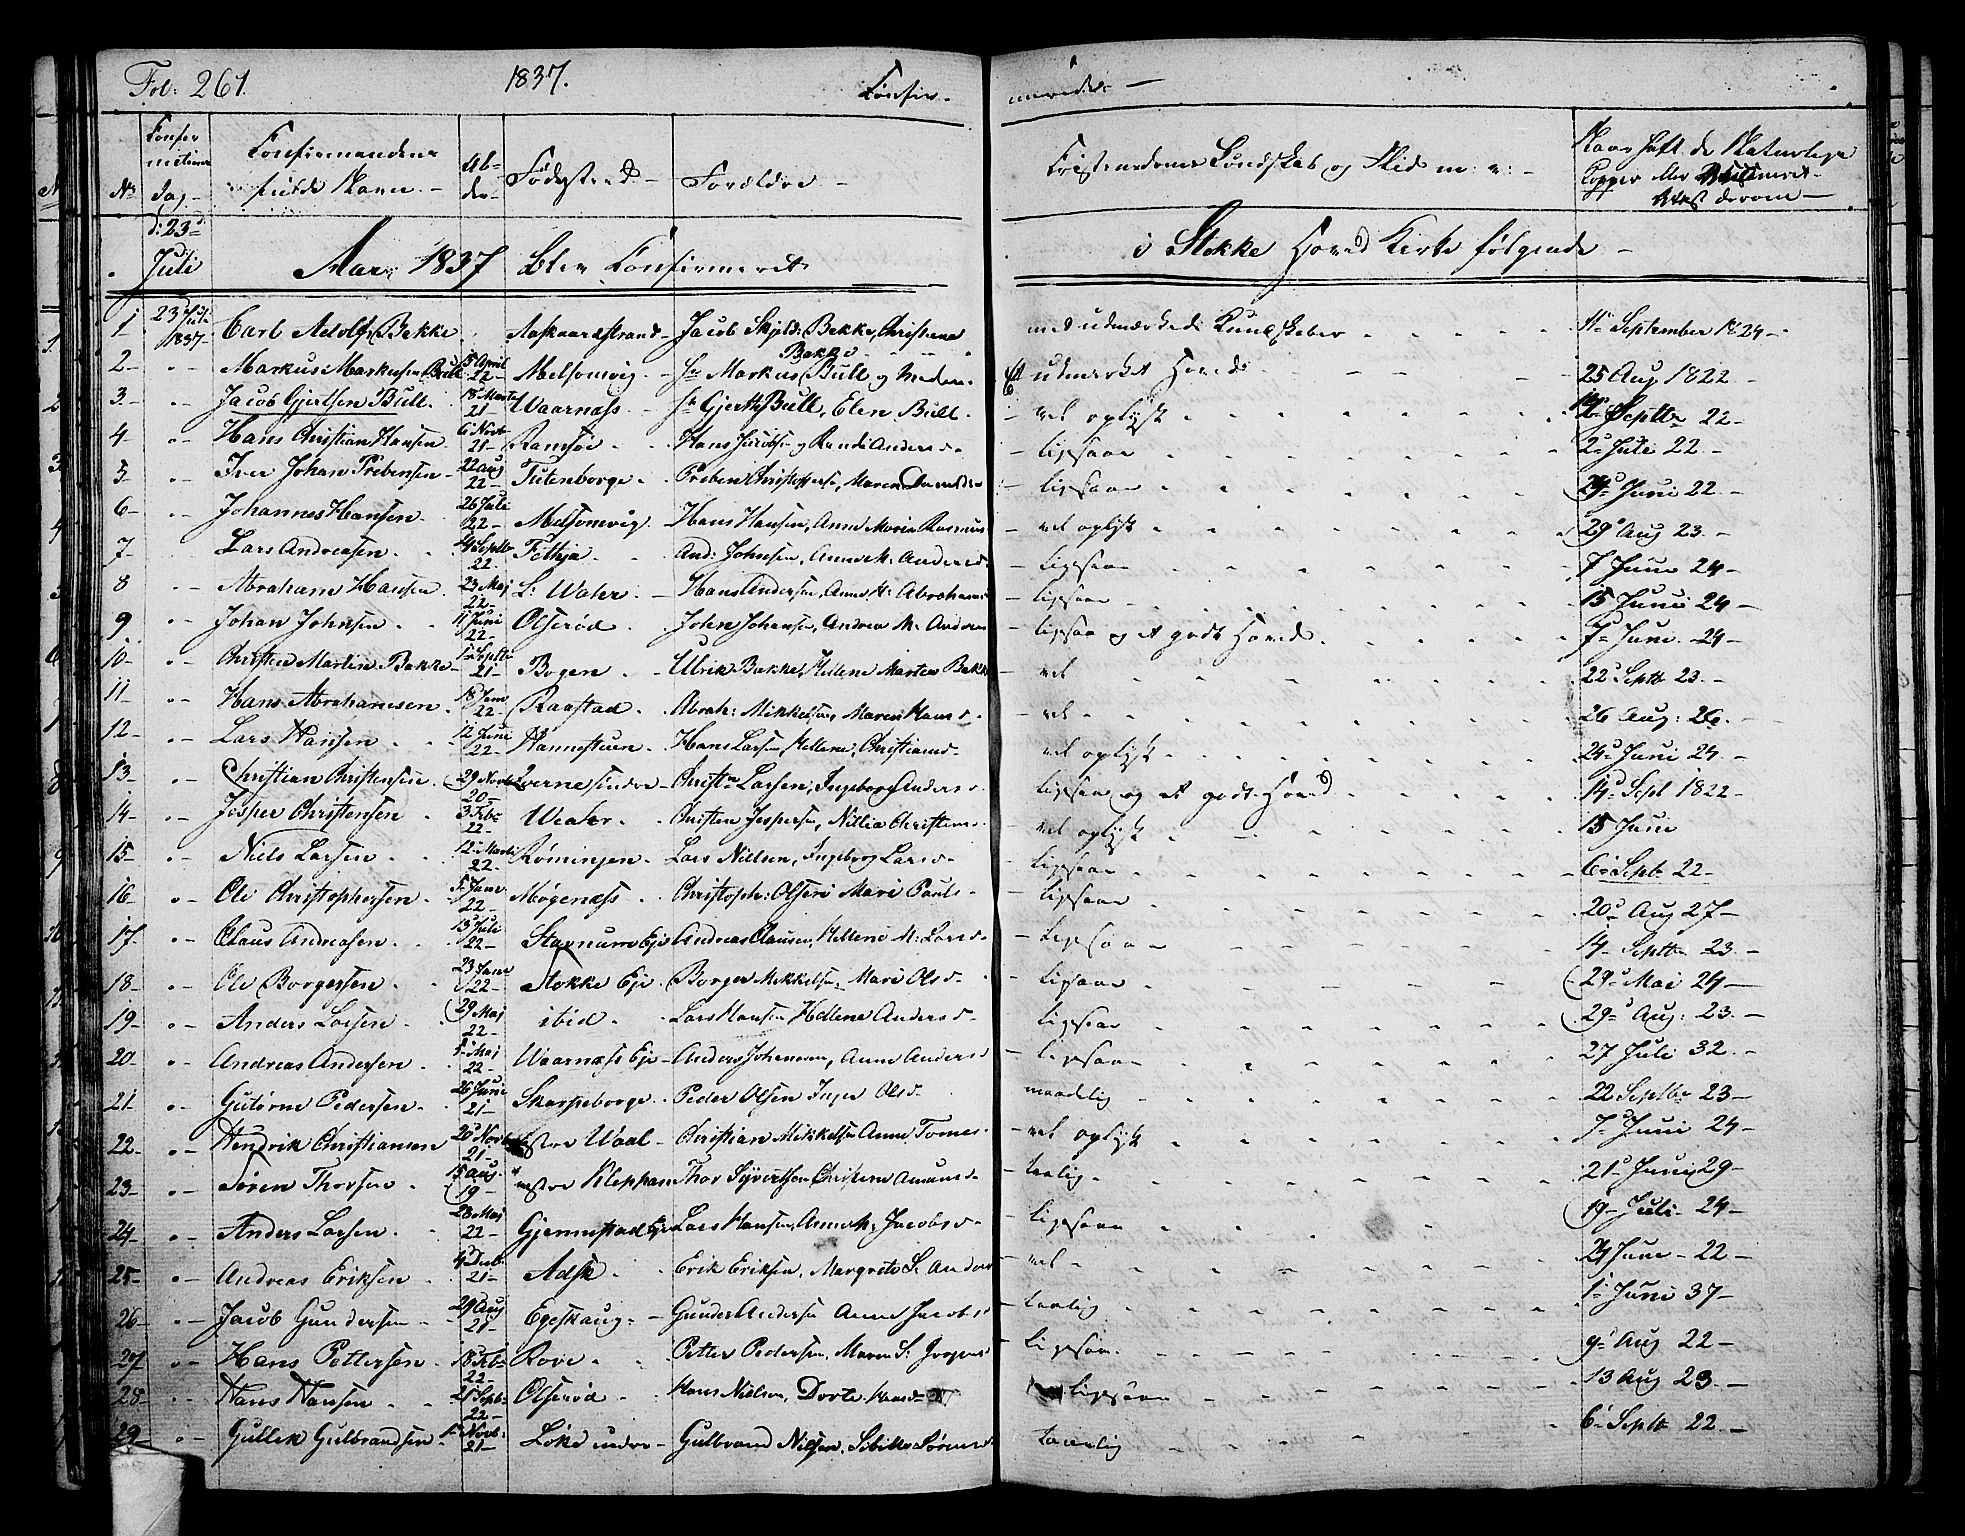 Fol: 261. 1837. Confir- merede. -
No Confir mations Dag - Confirmandens fulde Navn. - Al- der - Fødested - Forældre - Christendoms Kundskab og Flid m: v: - Naar haft de Naturlige Kopper eller Vaccineret Attest derom -
d: 23d Juli Aar 1837 blev Confirmeret i Stokke Hoved Kirke følgende -
1 23d Juli 1837 - Carl Adolf Bakke Aasgaardstrand - Jacob Skjeld: Bakke, Christiane Bakke med udmærkede Kundskaber 11te September 1824 -
2 - Markus Markussen Bull 15 April 22 - Melsomvig - Hr Markus Bull og Et udmærket Hoved 25 Aug 1822 -
3 - Jacob Gjertsen Bull. 18 Marts 21 - Waarnæss - Hr Gjerth Bull, Elen Bull. vel oplyst Septbr 22 -
4 - Hans Christian Hansen 6 Novb 21 - Ramsøe - Hans Jacobsen og Randi Andersd - ligesaa 2d Juli 22 -
5 - Iver Johan Prebensen - 22 Aug 22 - Tutenborge - Preben Christoffersen, Maren ligesaa Juni 22 -
6 - Johannes Hansen 26 Juli 22 - Melsomvig - Hans Hansen, Anne Maria Rasmus vel oplyst 29d Aug 23. -
7 Lars Andreasen. Septbr 22. - And: Johnsen, Anne M: Andersd ligesaa 7 Juni 24 -
8 - Abraham Hansen. 23 Maj 22 - L: Waler - Hans Andersen, Anne M: Abrahams ligesaa 15 Juni 24 -
9 - Johan Johnsen 11 Juni 22 - Olserød - John Johansen, Andrea M: Anders ligesaa og et godt Hoved 7d Juni 24 -
10 - Christen Martin Bakke - 1 Septb 21 - Bogen - Ulrik Bakke, Hellene Marten Bakke vel 22 Septb 23. -
11 - Hans Abrahamsen 18 Jan 22 - Raastad - Abrah: Mikkelsen, Maren Hansd - vel 26 Aug: 26. -
12 - Lars Hansen 12 Juni 22 - Hannesteen - Hans Larsen, Hellene Christiansd - vel oplyst 24d Juni 24. -
13 - Christian Christensen. 29 Novb 20 - - Christn Larsen, Ingeborg Anders d - ligesaa og et godt Hoved 14d Sept 1822 -
14 - Jesper Christensen 3 Feb: 22 - Weahr. - Christen Jespersen, Nillia Christens - vel oplyst 15 Juni
15 - Niels Larsen 12 Marti 22. - Rømingen - Lars Nielsen, Ingeborg Larsd - ligesaa 6 Septb 22 -
16 - Ole Christophersen 5 Jan 22 - Møgenæss - Christoph: Olsen Mari Pauls - ligesaa 20d Aug 27 -
17 - Claus Andreasen 13 Juli 22 - Stavnum Eje Andreas Clausen, Hellene M: Larsd - ligesaa 14 Septb 23. -
18 - Ole Borgersen 23 Jan 22 - Stokke Eje - Borger Mikkelsen Mari Olsd - ligesaa 29d Mai 24 -
19 - Anders Larsen 29 Maj 22 - ibid - Lars Hansen Hellene Andersd - ligesaa 29d Aug: 23. -
20 - Andreas Andersen 5 Maj 22 - Waarnæss Eje - Anders Johannesen, Anne Andersd ligesaa 27 Juli 32. -
21 - Gutorm Pedersen - 26 Juni 21 - Skarpeborge - Peder Olsen Inger Olsd - maadelig 22 Septbr 23 -
22 - Hendrik Christiansen 20 Novb 21 - Waal - Christian Mikkelsen Anne Tomes - vel oplyst 7d Juni 24 -
23 - Søren Thorsen 15 Aug - 19 - Kleppan Thor Syvertsen Christine Amunds - taalig 21d Juni 29 -
24 - Anders Larsen 28 Maj 22 - Gjennestad Eje Lars Hansen, Anne M: Jacobsd - ligesaa 19 - Juli 24 -
25 - Andreas Eriksen 4 Decb: 21 - Adsk - Erik Eriksen, Margrete S: Anders vel 24 Juni - 22 -
26 - Jacob Gundersen 29 Aug 21 - Egeskaug - Gunder Andersen Anne Jacobsd taalig 1 Juni 37 -
27 - Hans Pettersen 18 Feb: 22 - Rove - Petter Pedersen, Maren S: ligesaa 9d Aug 22 -
28 - Hans Hansen 25 Septb: 22 - Olserød - Hans Nielsen, Dorte Hansd ligesaa 13 Aug 23. -
29 - Gullik Gulbrandsen - 1 Novb: 21 - Løke nedre - Gulbrand Nilsen, Sibille Sørensd taalelig 6 Septb 22 -